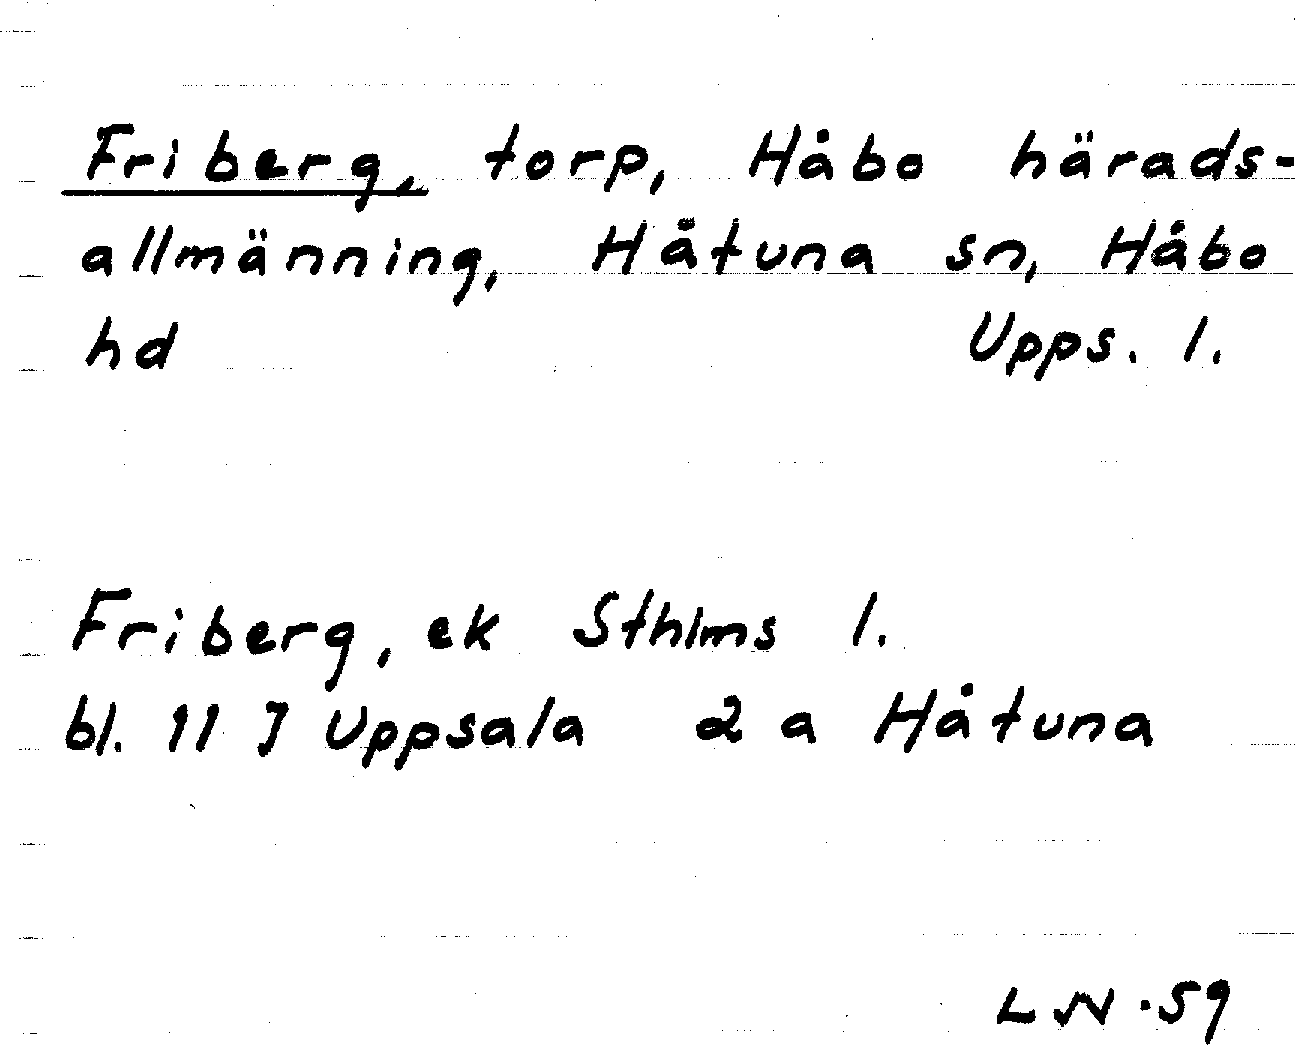 Friberg, torp, Håbo härads-
allmänning, Håtuna sn, Håbo
hd Upps. l.
Friberg, ek Sthlms l.
bl. 11 J Uppsala 2 a Håtuna
LN ·59